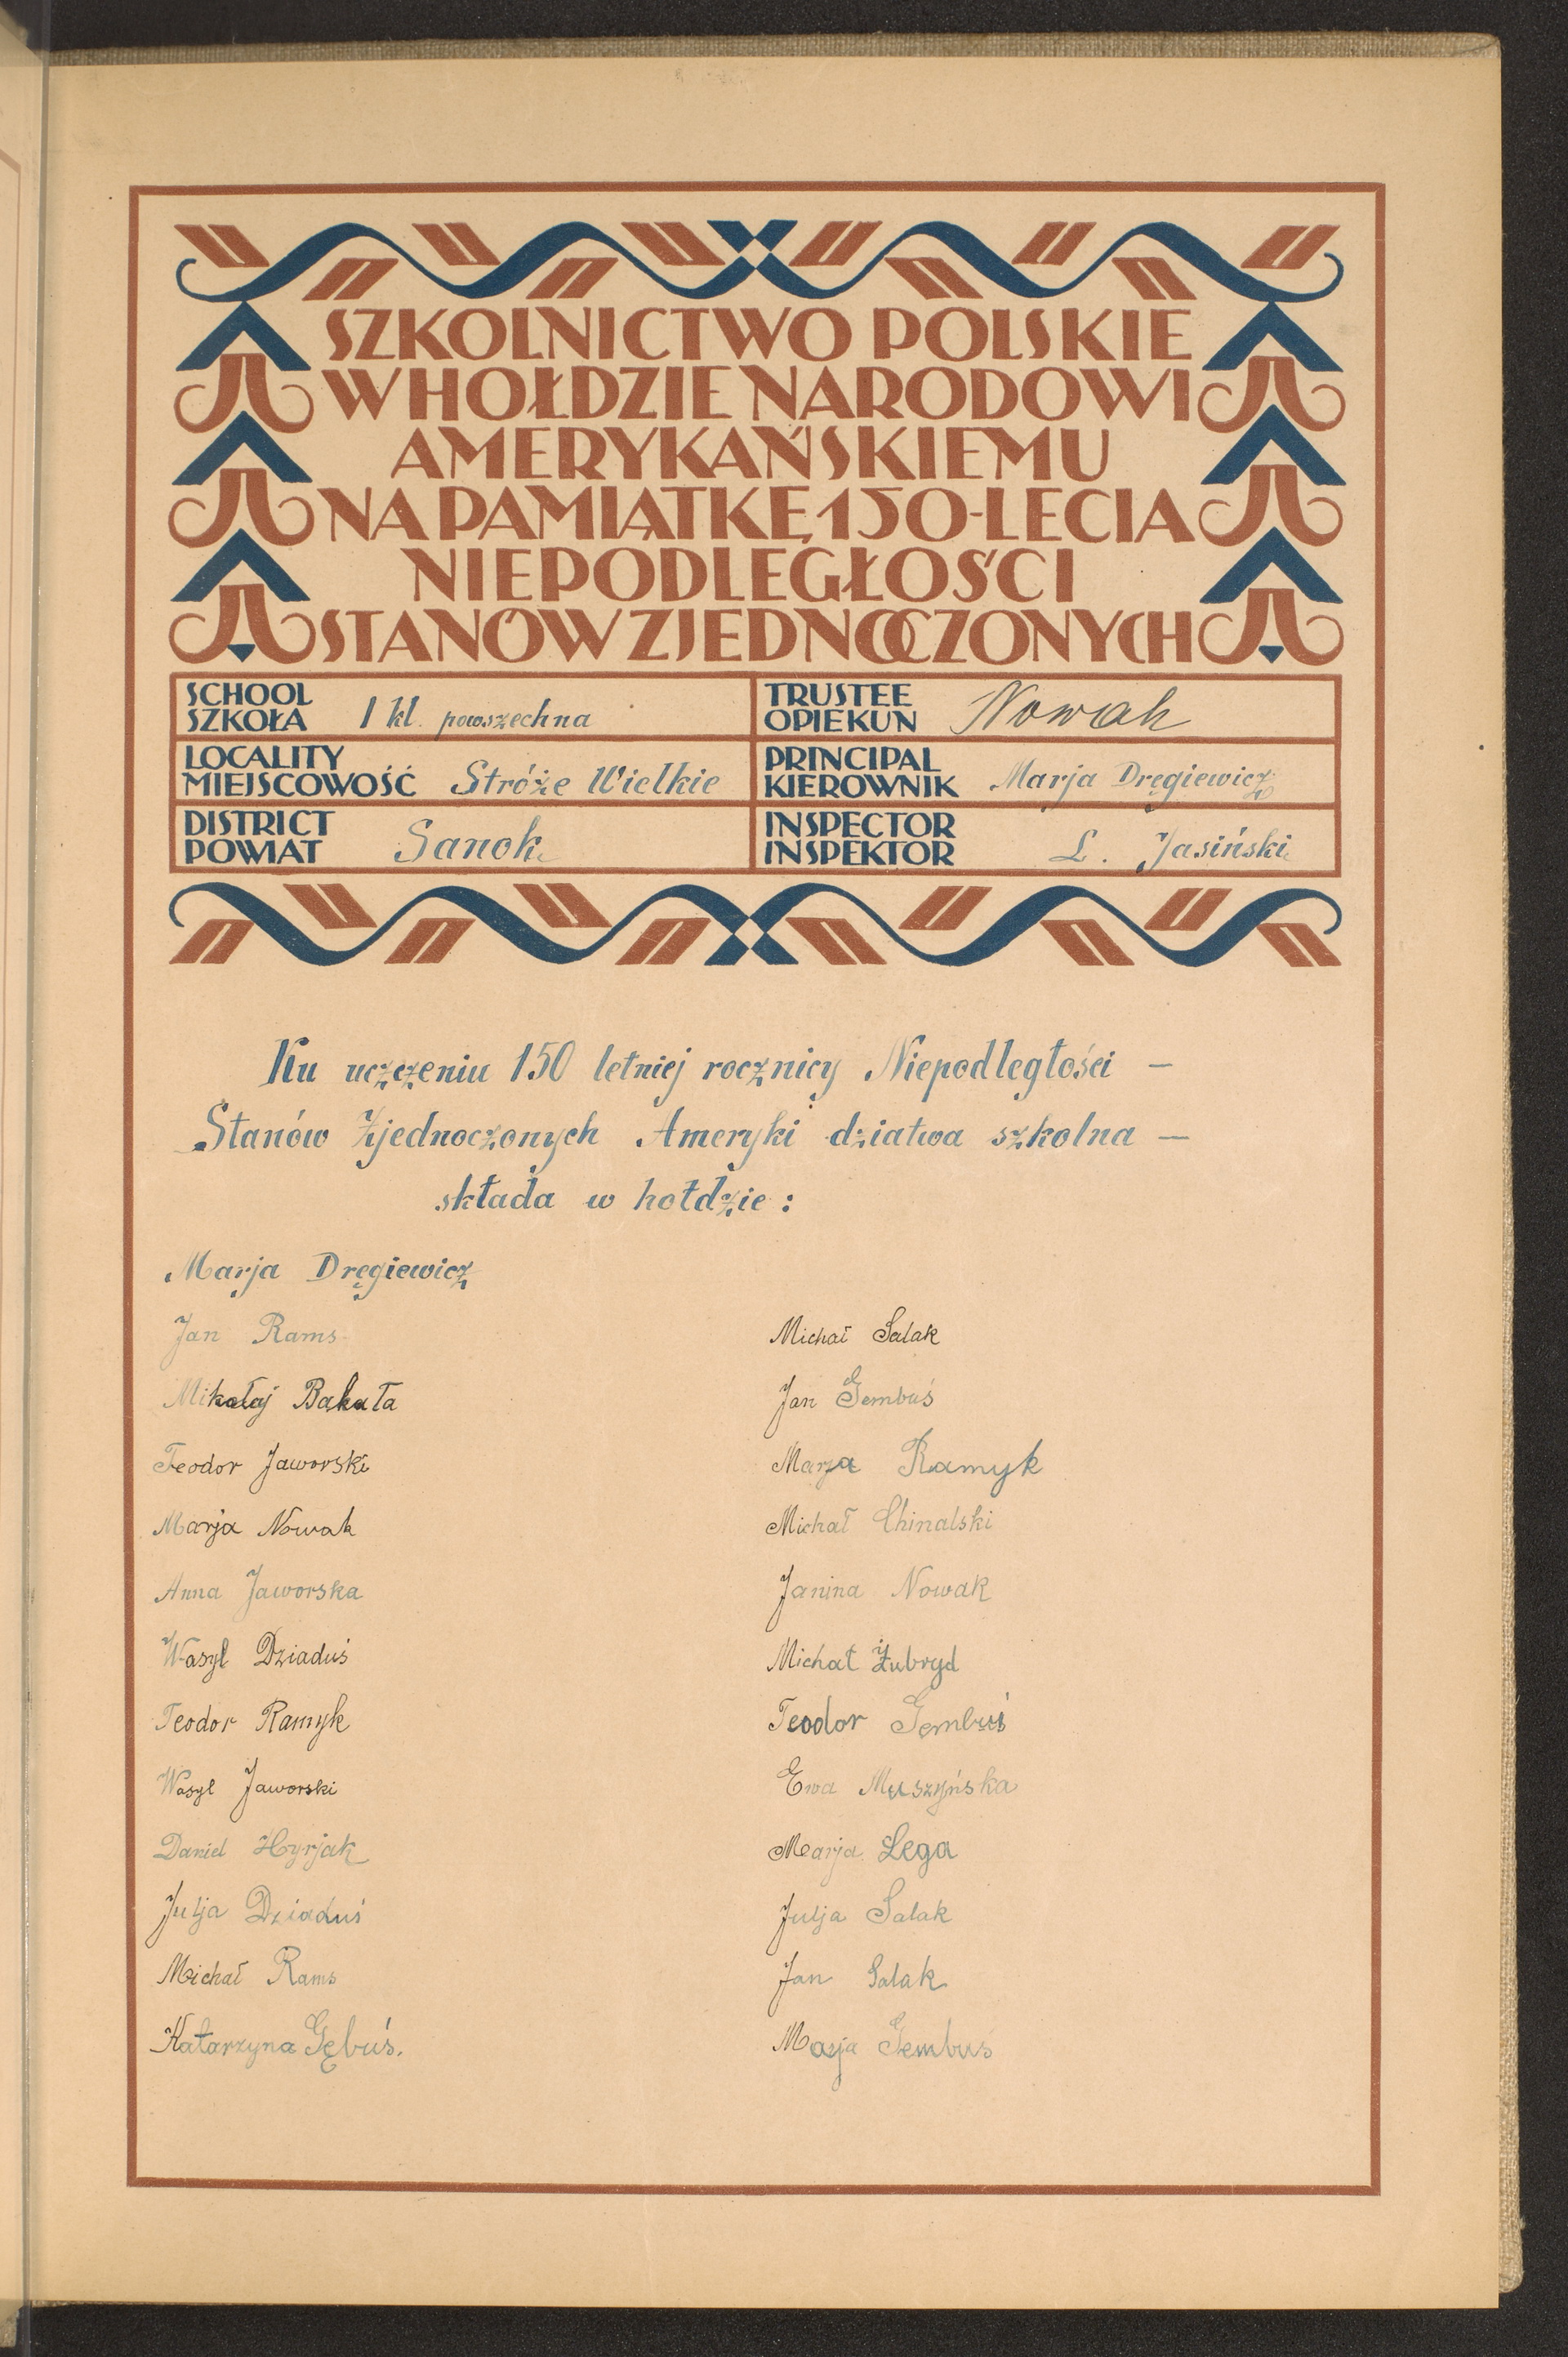 SZKOLNICTWO POLSKIE
W HOŁDZIE NARODOWI
AMERYKAŃSKIEMU
NA PAMIĄTKĘ 150-LECIA
NIEPODLEGŁOŚCI
STANÓW ZJEDNOCZONYCH
SCHOOL
SZKOŁA 1 kl. powszechna
TRUSTEE
OPIEKUN Nowak
LOCALITY
MIEJSCOWOŚĆ Stróże Wielkie
PRINCIPAL
KIEROWNIK Marja Dręgiewicz
DISTRICT
POWIAT Sanok
INSPECTOR
INSPEKTOR L. Jasiński
Ku uczczeniu 150 letniej rocznicy Niepodległości —
Stanów Zjednoczonych Ameryki dziatwa szkolna —
składa w hołdzie :
Marja Dręgiewicz
Jan Rams
Mikołaj Bakała
Teodor Jaworski
Marja Nowak
Anna Jaworska
Wasyl Dziaduś
Teodor Ramyk
Wasyl Jaworski
Daniel Hyrjak
Julja Dziaduś
Michał Rams
Katarzyna Gębuś.
Michał Salak
Jan Gembuś
Marja Ramyk
Michał Chinalski
Janina Nowak
Michał Żubryd
Teodor Gembuś
Ewa Muszyńska
Marja Lega
Julja Salak
Jan Salak
Marja Gembus